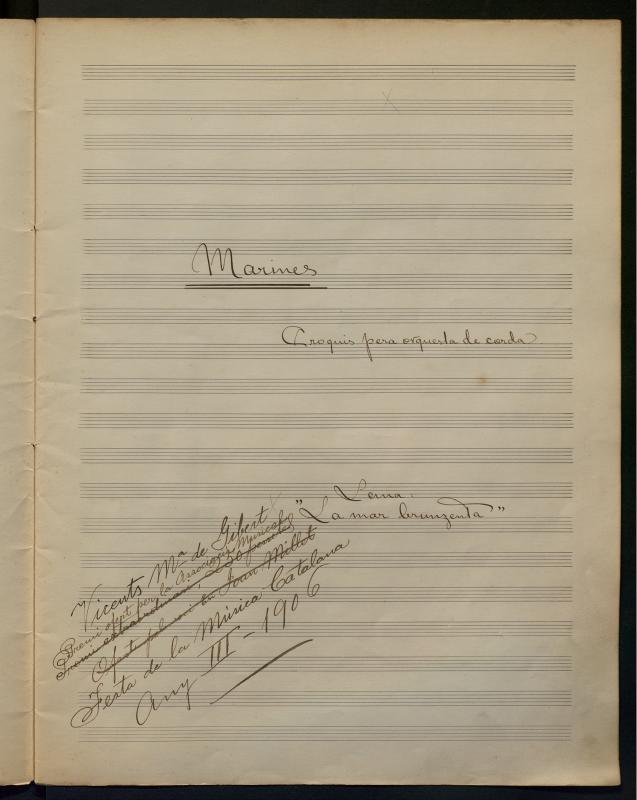 Marines
Croquis pera orquesta de corda
Lema:
"La mar brunzenta"
Vicents Mª de Gibert
Premi ofert per la Associació Musical
Premi extraordinari,
Ofert pel mtre. Joan Millet
Festa de la Música Catalana
Any III - 1906